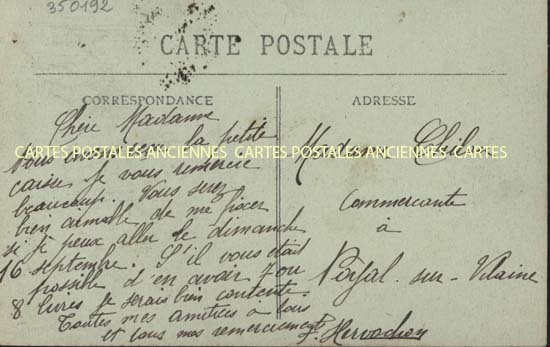 350192
CARTE POSTALE
CORRESPONDANCE
Chère Madame
nous avons reçu la petite
caisse je vous remercie
beaucoup. Vous serez
bien aimable de me fixer
si je peux aller le dimanche
16 septembre. S'il vous était
possible d'en avoir 7 ou
8 livres je serais bien contente.
Toutes mes amitiés à tous
et tous mes remerciements
ADRESSE
Madame
Commercante
à
Noyal-sur-Vilaine
CARTES POSTALES ANCIENNES CARTES POSTALES ANCIENNES CARTES